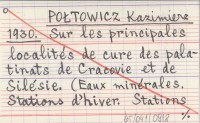 POŁTOWICZ Kazimierz
1930. Sur les principales
localités de cure des pala-
tinats de Cracovie et de
Silésie. (Eaux minérales.
Stations d'hiver. Stations
%